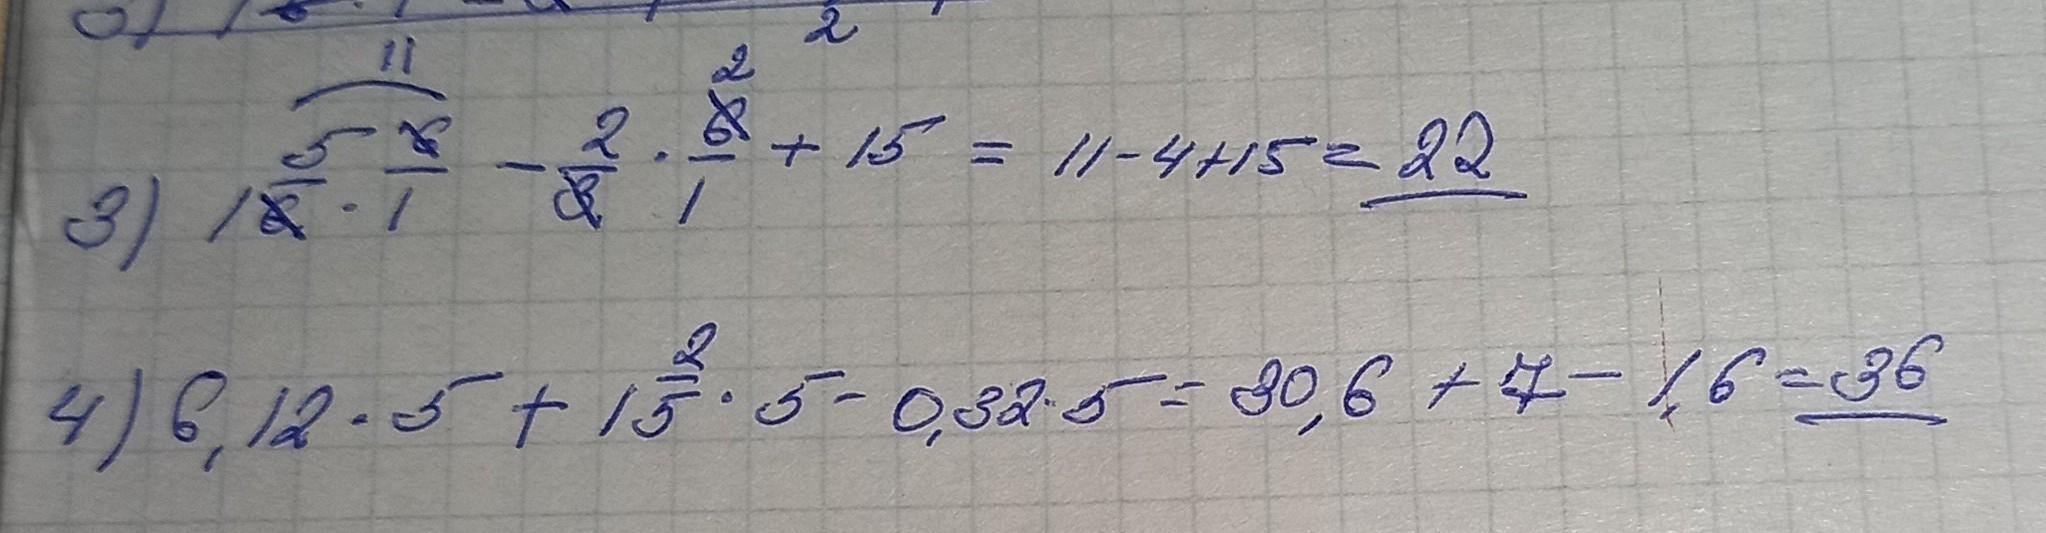 2
11
3) 1 5/6 · 6/1 - 2/3 · 6/1 2 + 15 = 11 - 4 + 15 = 22
4) 6,12 · 5 + 1 2/5 · 5 - 0,32 · 5 = 30,6 + 7 - 1,6 = 36